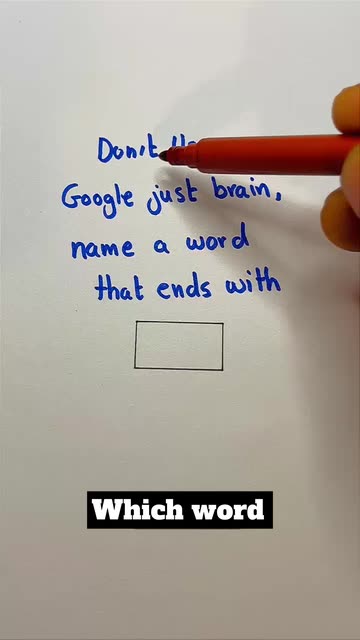 Don't
Google just brain,
name a word
that ends with
Which word